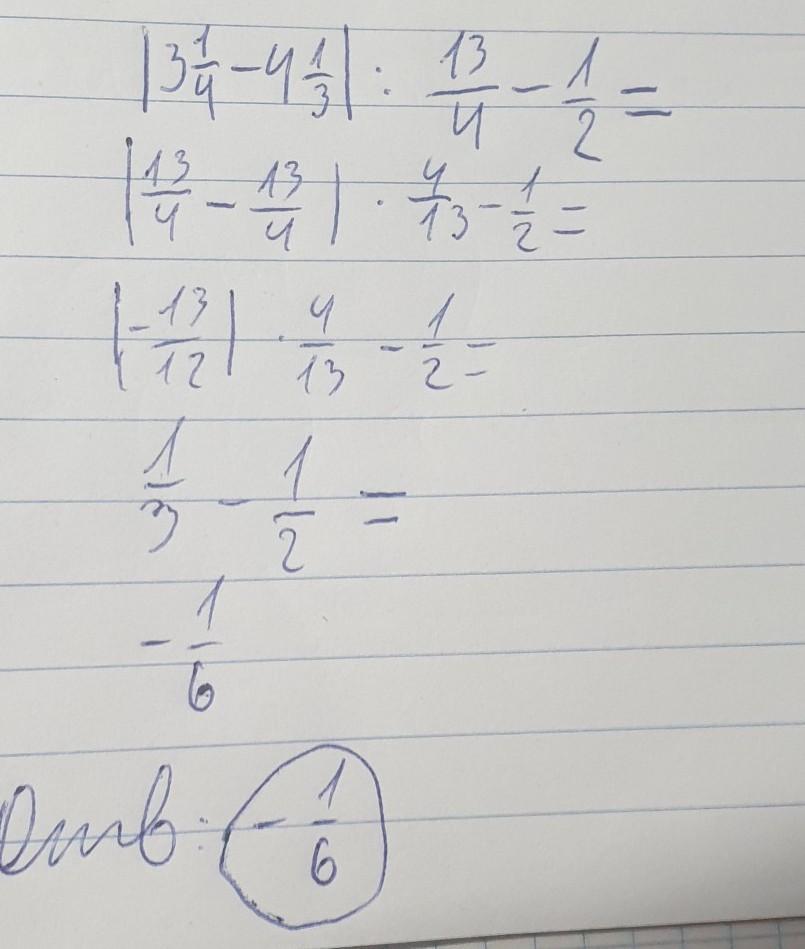 |3 1/4 - 4 1/3| : 13/4 - 1/2 =
|13/4 - 13/4| · 4/13 - 1/2 =
|-13/12| · 4/13 - 1/2 =
1/3 - 1/2 =
- 1/6
Отв: - 1/6